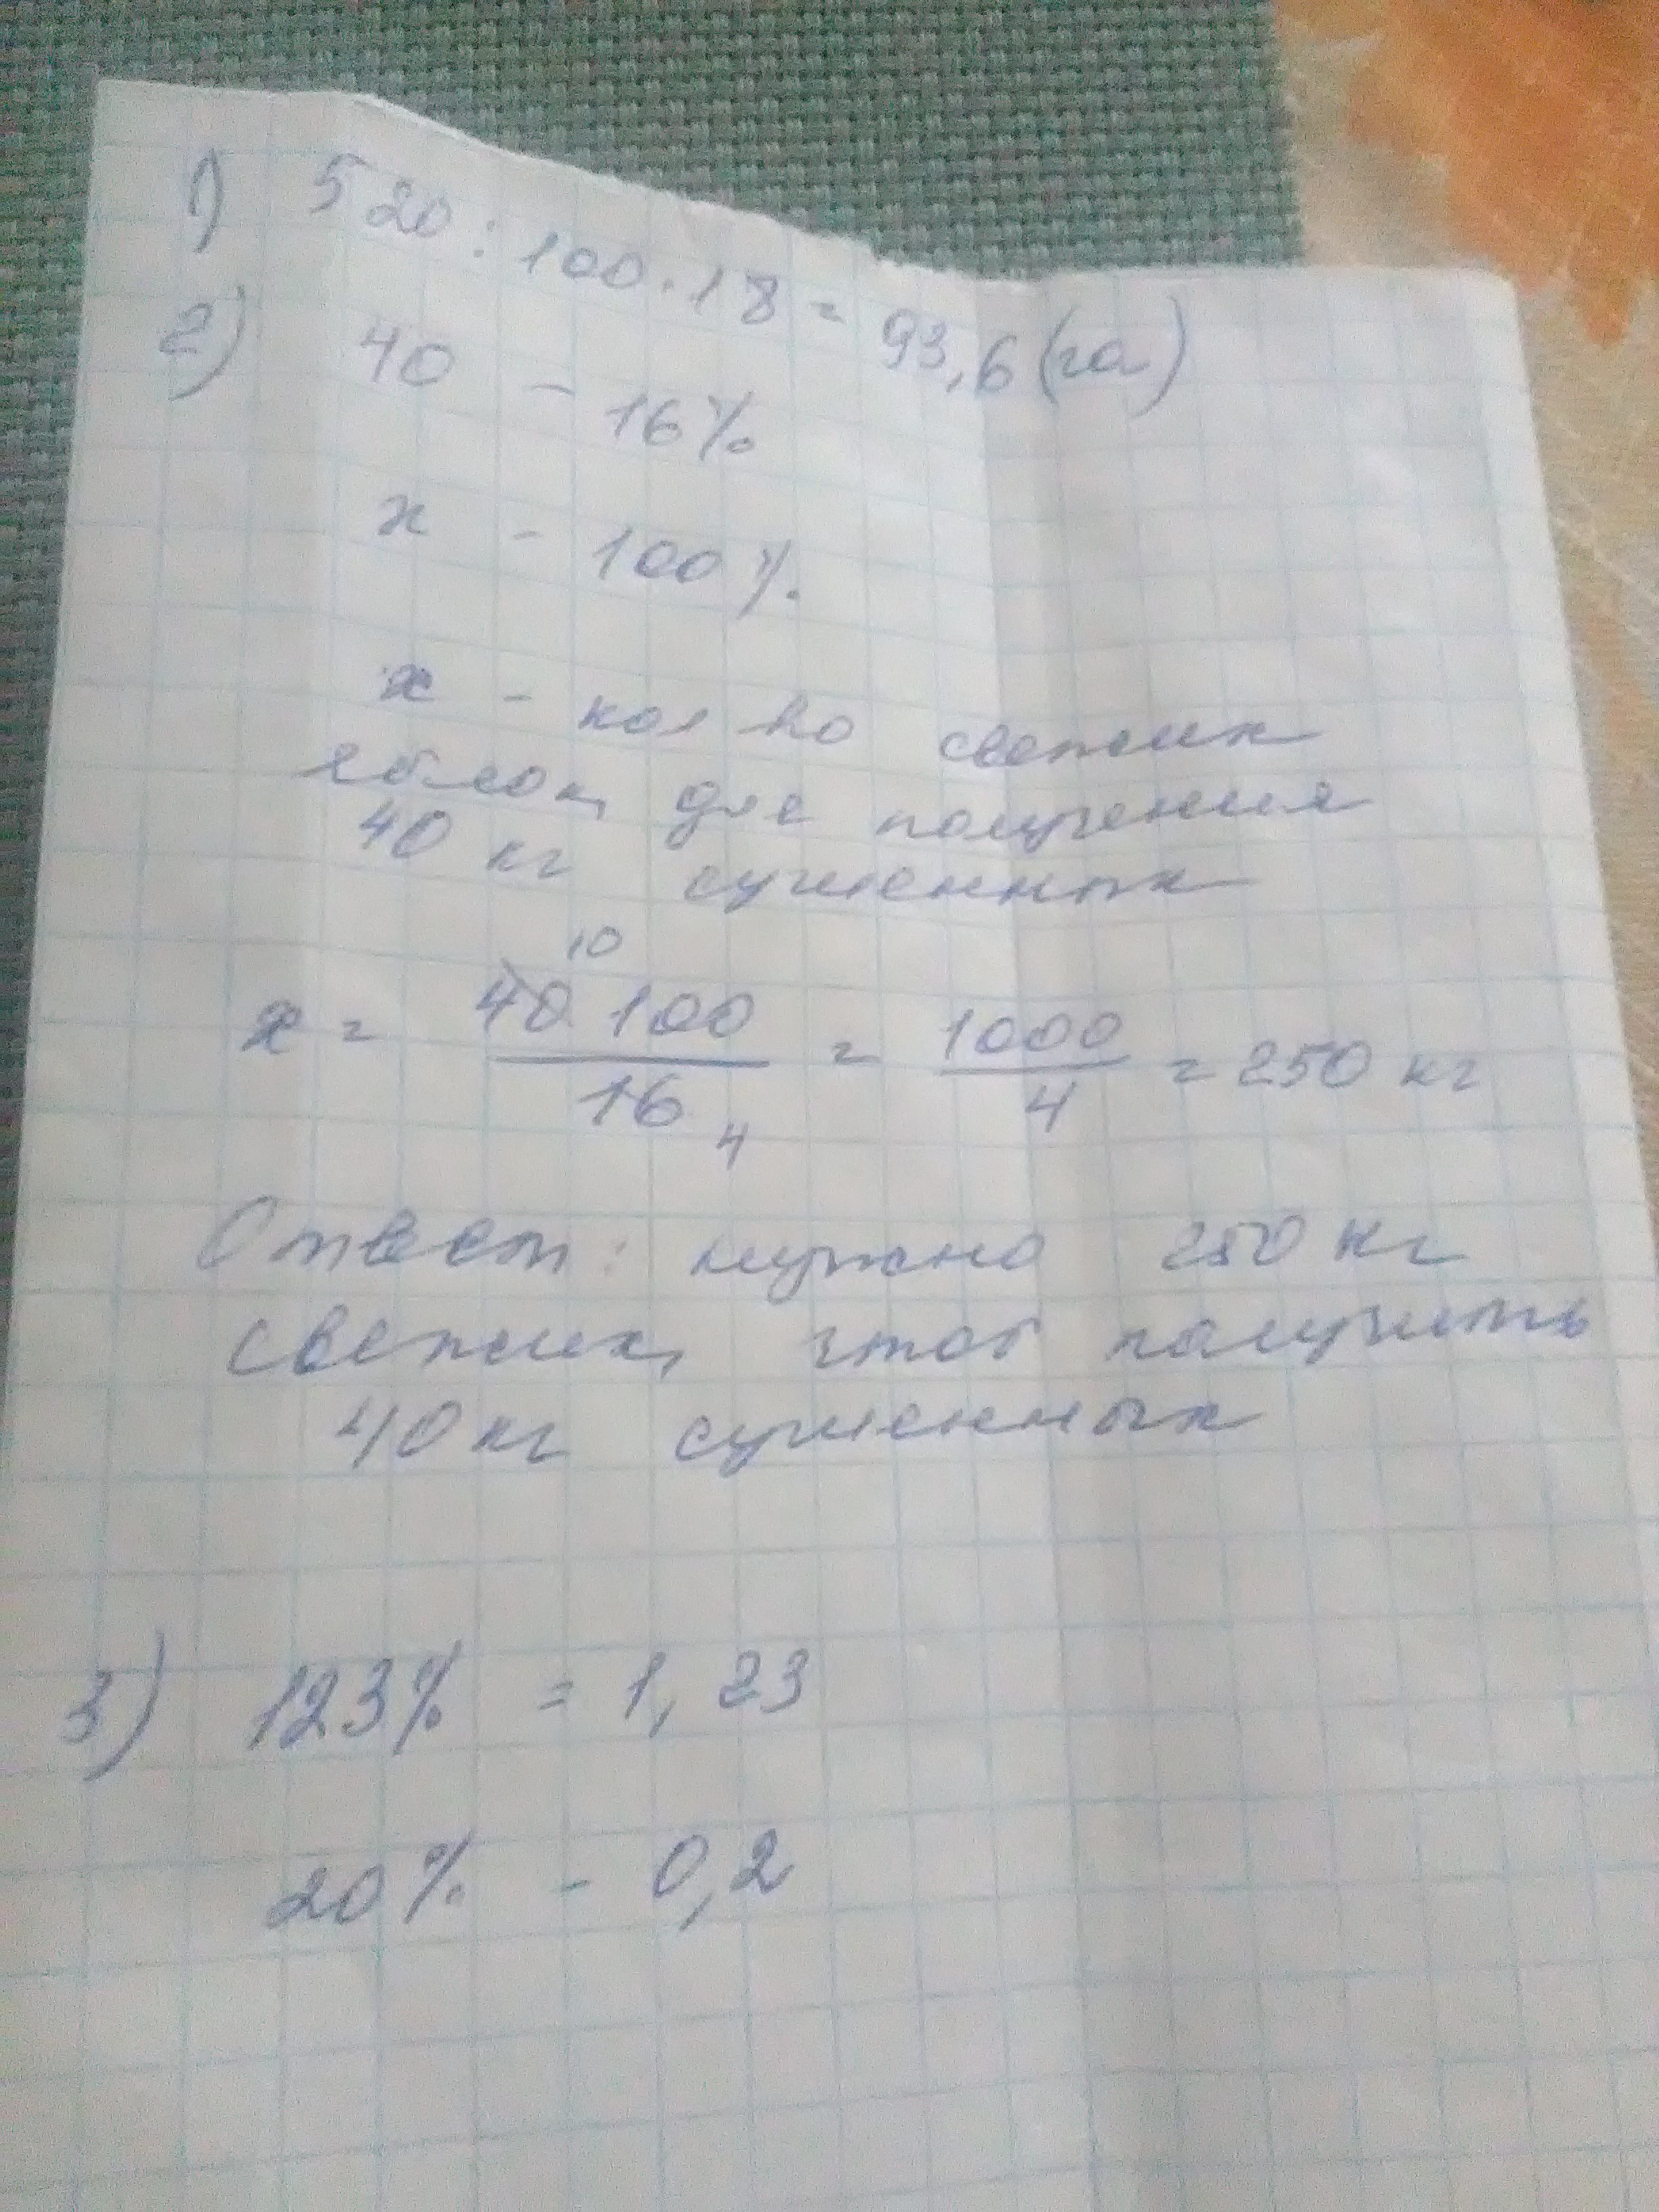 1) 520 : 100 · 18 = 93,6 (га)
2) 40 - 16%
x - 100%.
x - кол во свежих
яблок, для получения
40 кг сушенных
10
x = 40 · 100 / 16 = 1000 / 4 = 250 кг
4
Ответ: нужно 250 кг
свежих, чтоб получить
40 кг сушенных
3) 123% = 1,23
20% - 0,2